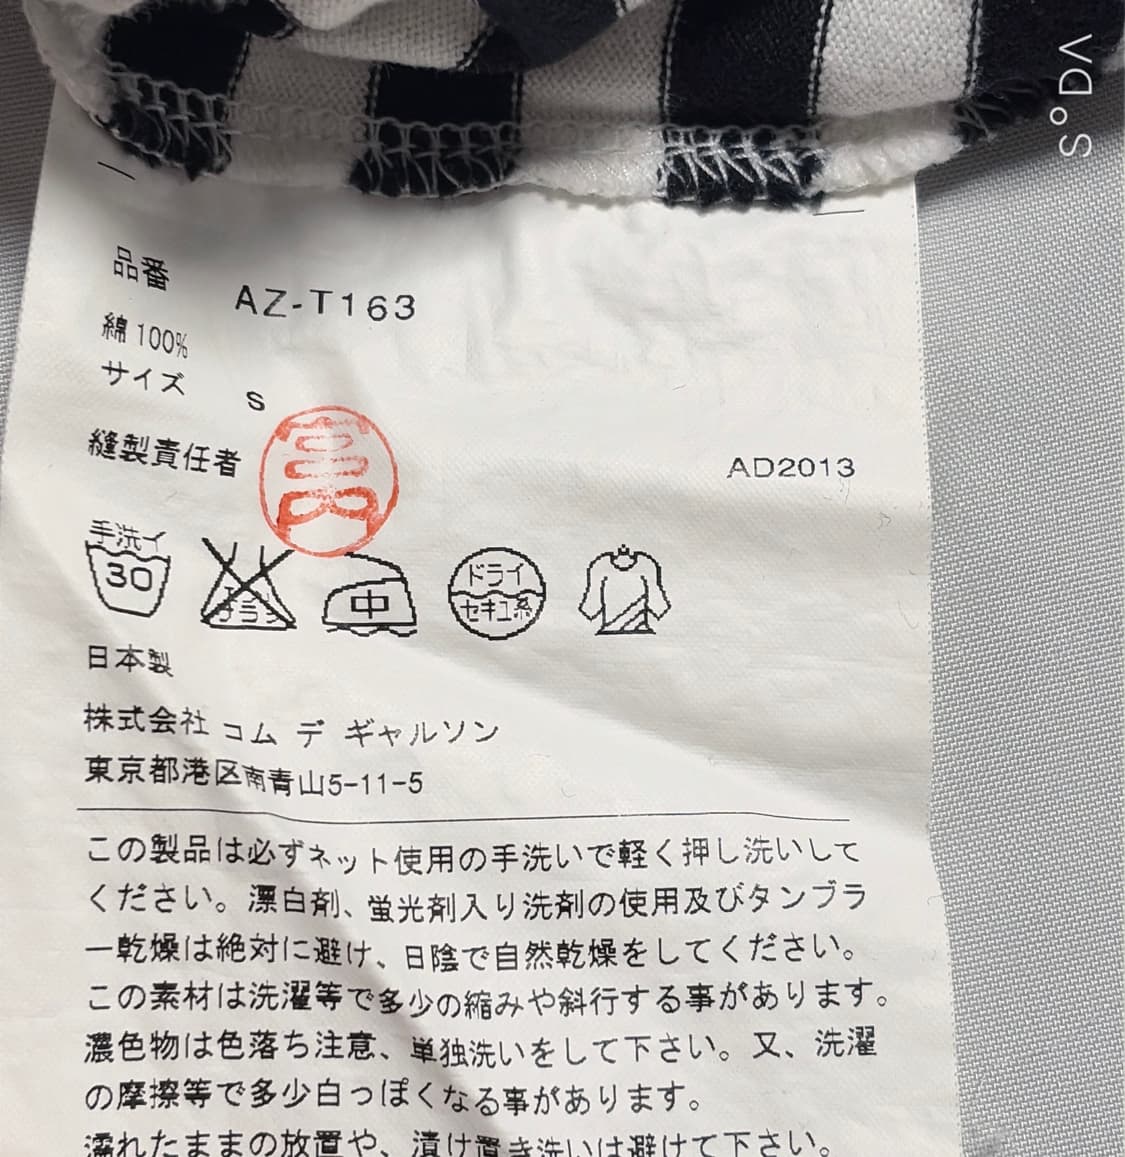 va.s
品番 AZ-T163
綿100%
サイズ S
縫製責任者
AD2013
手洗イ
30
中
ドライ
セキユ系
日本製
株式会社 コム デ ギャルソン
東京都港区南青山5-11-5
この製品は必ずネット使用の手洗いで軽く押し洗いして
ください。漂白剤、蛍光剤入り洗剤の使用及びタンブラ
ー乾燥は絶対に避け、日陰で自然乾燥をしてください。
この素材は洗濯等で多少の縮みや斜行する事があります。
濃色物は色落ち注意、単独洗いをして下さい。又、洗濯
の摩擦等で多少白っぽくなる事があります。
濡れたままの放置や、漬け置き洗いは避けて下さい。